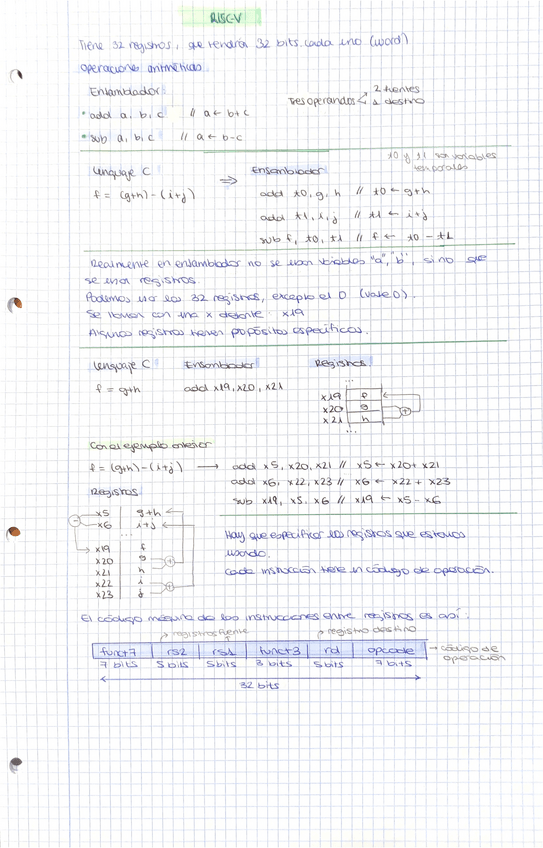 RISC-V
Tiene 32 registros, que tendrán 32 bits cada uno (word)
operaciones aritméticas
Ensamblador
• add a, b, c // a ← b+c
• sub a, b, c // a ← b-c
Tres operandos
2 fuentes
1 destino
Lenguaje C ⇒ Ensamblador
t0 y t1 son variables
temporales
f = (g+h) - (i+j)
add t0, g, h // t0 ← g+h
add t1, i, j // t1 ← i+j
sub f, t0, t1 // f ← t0 - t1
Realmente en ensamblador no se usan variables "a", "b", sino que
se usan registros.
Podemos usar los 32 registros, excepto el 0 (vale 0).
Se llaman con una x delante: x19
Algunos registros tienen propósitos específicos.
Lenguaje C Ensamblador Registros
f = g+h add x19, x20, x21
...
x19 f
x20 g
x21 h
+
...
Con el ejemplo anterior
f = (g+h) - (i+j) → add x5, x20, x21 // x5 ← x20 + x21
add x6, x22, x23 // x6 ← x22 + x23
sub x19, x5, x6 // x19 ← x5 - x6
Registros
x5 g+h
x6 i+j
...
x19 f
x20 g
x21 h
x22 i
x23 j
-
+
+
Hay que especificar los registros que estamos
usando.
Cada instrucción tiene un código de operación.
El código máquina de las instrucciones entre registros es así:
registros fuente
registro destino
funct7 rs2 rs1 funct3 rd opcode → código de
operación
7 bits 5 bits 5 bits 3 bits 5 bits 7 bits
32 bits